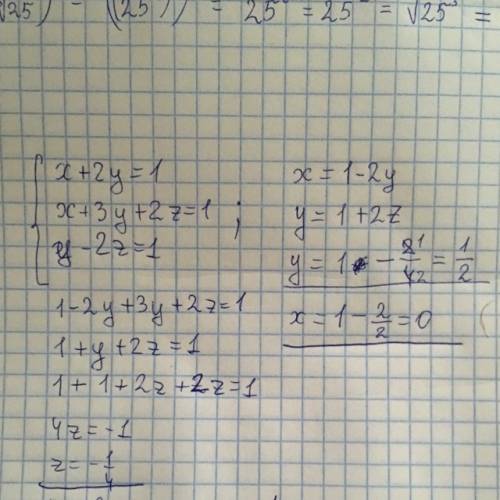 √25) - ((25 )) = 25 = 25 = √25³ =
x+2y=1
x+3y+2z=1 ;
y-2z=1
1-2y+3y+2z=1
1+y+2z=1
1+1+2z+2z=1
4z=-1
z=-1/4
x=1-2y
y=1+2z
y=1-2/4=1/2
x=1-2/2=0